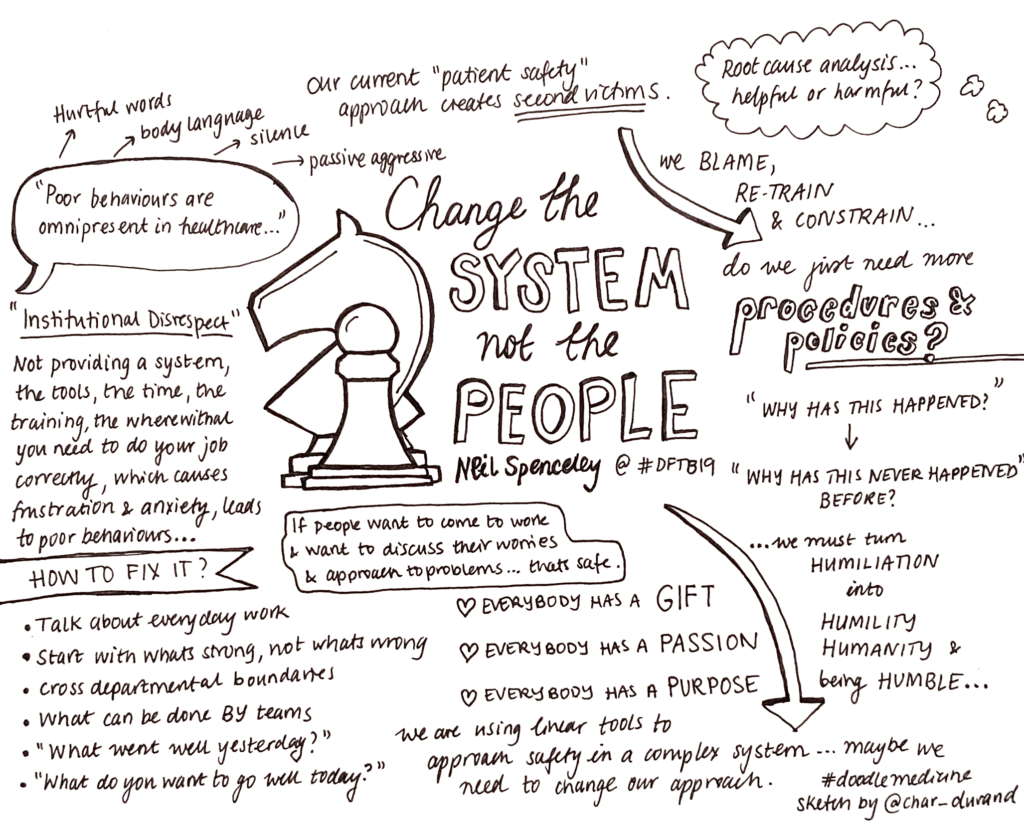 Our current "patient safety"
approach creates second victims.
Root cause analysis...
helpful or harmful?
Hurtful words
body language
silence
passive aggressive
"Poor behaviours are
omnipresent in healthcare..."
we BLAME,
RE-TRAIN
& CONSTRAIN...
do we just need more
procedures &
policies?
Change the
SYSTEM
not the
PEOPLE
Neil Spenceley @ #DFTB19
"Institutional Disrespect"
Not providing a system,
the tools, the time, the
training, the wherewithal
you need to do your job
correctly, which causes
frustration & anxiety, leads
to poor behaviours...
"WHY HAS THIS HAPPENED?"
"WHY HAS THIS NEVER HAPPENED"
BEFORE?
...we must turn
HUMILIATION
into
HUMILITY
HUMANITY &
being HUMBLE...
If people want to come to work
& want to discuss their worries
& approach to problems... thats safe.
HOW TO FIX IT?
• Talk about everyday work
• Start with whats strong, not whats wrong
• cross departmental boundaries
• What can be done BY teams
• "What went well yesterday?"
• "What do you want to go well today?"
♡ EVERYBODY HAS A GIFT
♡ EVERYBODY HAS A PASSION
♡ EVERYBODY HAS A PURPOSE
we are using linear tools to
approach safety in a complex system... maybe we
need to change our approach.
#doodlemedicine
sketch by @char_durand